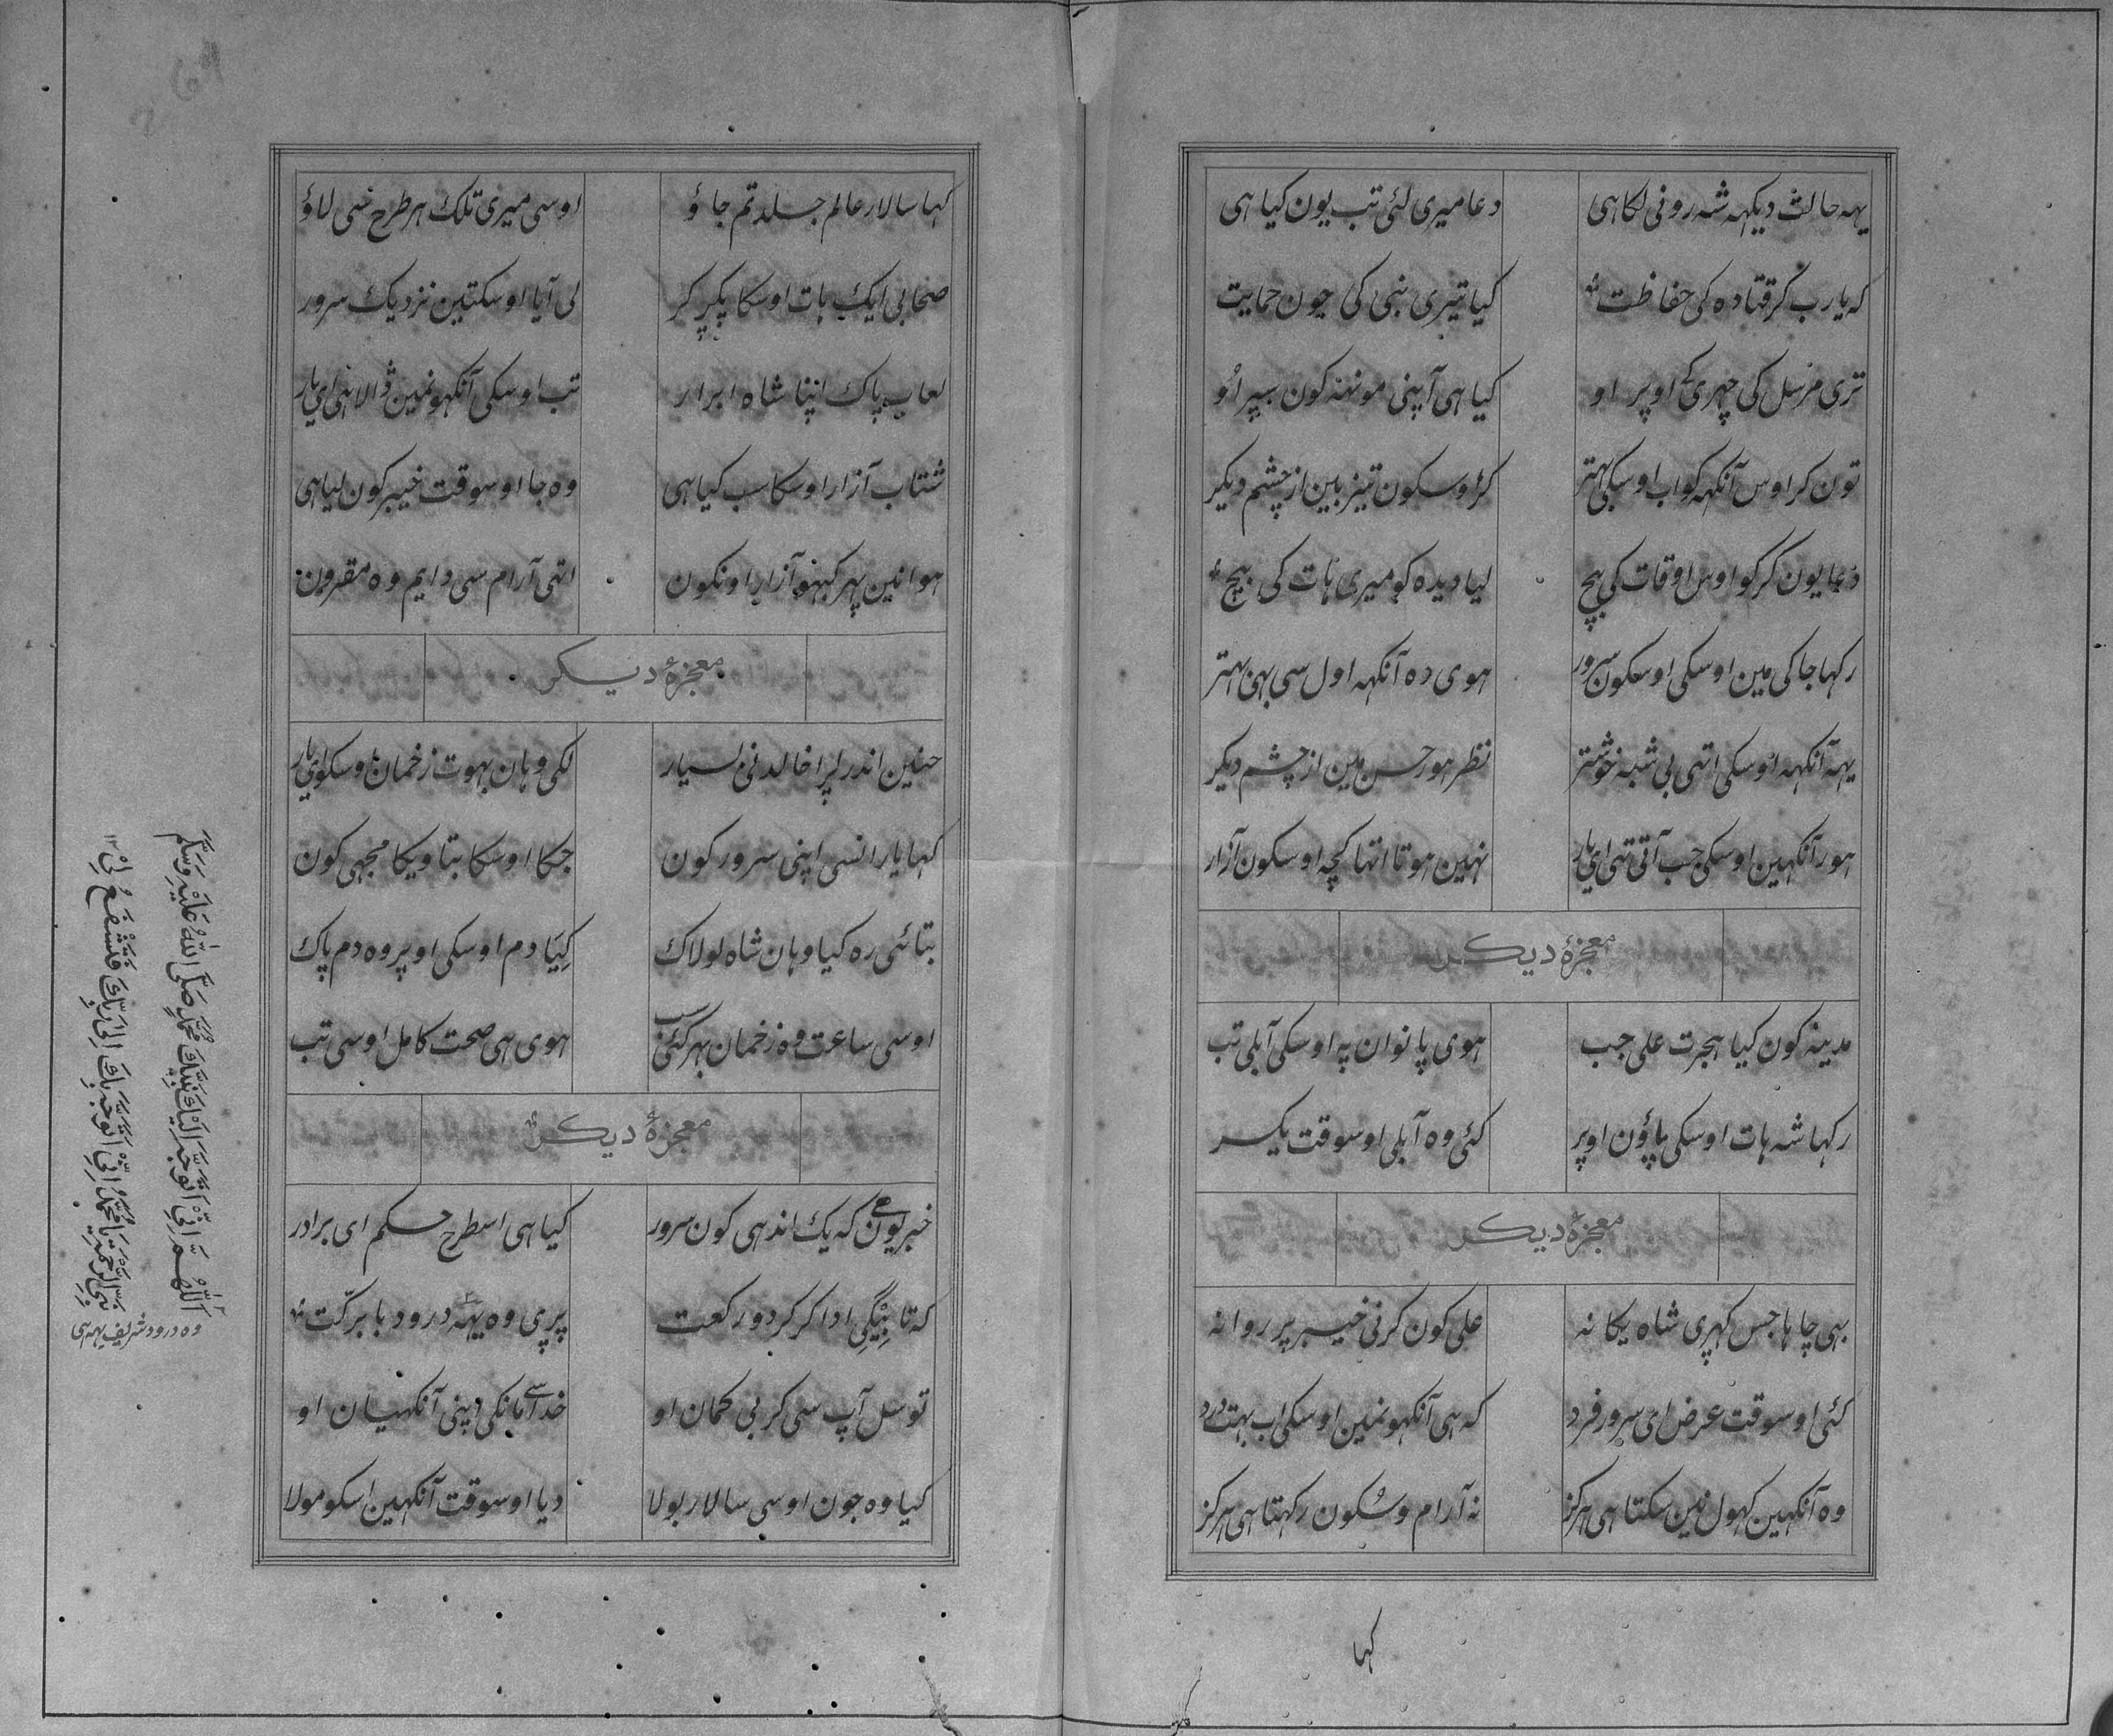 یہہ حالت دیکہہ شہ رونی لکا ہی دعا میری لئی تب یون کیا ہی
کہ یا رب کر قتادہ کی حفاظت کیا تیری نبی کی جون حمایت
تری مرسل کی چہری کی اوپر او کیا ہی آپنی مونہہ کون سپر او
تون کر اوس آنکہہ کو اب اوسکی بہتر کر اوسکون تیز بین از چشم دیکر
دعا یون کر کو اوس اوقات کی بیچ لیا دیدہ کو میری ہات کی بیچ
رکہا جا کی مین اوسکی اوسکون سرور ہوی وہ آنکہہ اول سی بہی بہتر
یہہ آنکہہ اوسکی اتہی بی شبہ خوشتر نظر ہور حسن مین از چشم دیکر
ہور آنکہین اوسکی جب آتی تہی ای یار نہین ہوتا اتہا کچہ اوسکون آزار
معجزۂ دیکر
مدینہ کون کیا ہجرت علی جب ہوی پانوان پہ اوسکی آبلی تب
رکہا شہ ہات اوسکی پاؤن اوپر کئی وہ آبلی اوسوقت یکسر
معجزۂ دیکر
بہی چاہا جس کہری شاہ یکانہ علی کون کرنی خیبر پر روانہ
کئی اوسوقت عرض ای سرور فرد کہ ہی آنکہونمین اوسکی اب بہت درد
وہ آنکہین کہول نین سکتا ہی ہرکز نہ آرام و سکون رکہتا ہی ہرکز
کہا
کہا سالار عالم جلد تم جاؤ اوسی میری تلک ہر طرح سی لاؤ
صحابی ایک ہات اوسکا پکر کر لی آیا اوسکتین نزدیک سرور
لعاب پاک اپنا شاہ ابرار تب اوسکی آنکہونمین ڈالا ہی ای یار
شتاب آزار اوسکا سب کیا ہی وہ جا اوسوقت خیبر کون لیا ہی
ہوا نین پہر کبہو آزار اونکون اتہی آرام سی دایم وہ مقرون
معجزۂ دیکر
حنین اندر لرا خالد نی بسیار لکی وہان بہوت زخمان اوسکو ای یار
کہا یارانسی اپنی سرور کون جکا اوسکا بتاویکا مجہی کون
بتائی رہ کیا وہان شاہ لولاک کِیَا دم اوسکی اوپر وہ دم پاک
اوسی ساعت وہ زخمان بہر کئی سب ہوی ہی صحت کامل اوسی تب
معجزۂ دیکر
خبر یون ہی کہ یک اندہی کون سرور کیا ہی اسطرح حکم ای برادر
کہ تا بیگی ادا کر کر دو رکعت پری وہ یہہ درود با برکت
توسل آپ سی کر بی کمان او خدا سی مانکی اپنی آنکہیان او
کیا وہ جون اوسی سالار بولا دیا اوسوقت آنکہین اسکو مولا
وہ درود شریف یہہ ہی
اَللّٰهُمَّ اِنِّیْ اَتَوَجَّهُ اِلَیْكَ بِنَبِیِّكَ مُحَمَّدٍ صَلَّی اللّٰهُ عَلَیْهِ وَسَلَّمَ
نَبِیِّ الرَّحْمَةِ یَا مُحَمَّدُ اِنِّیْ اَتَوَجَّهُ بِكَ اِلٰی رَبِّكَ فَتَشْفَعُ لِیْ ١٢